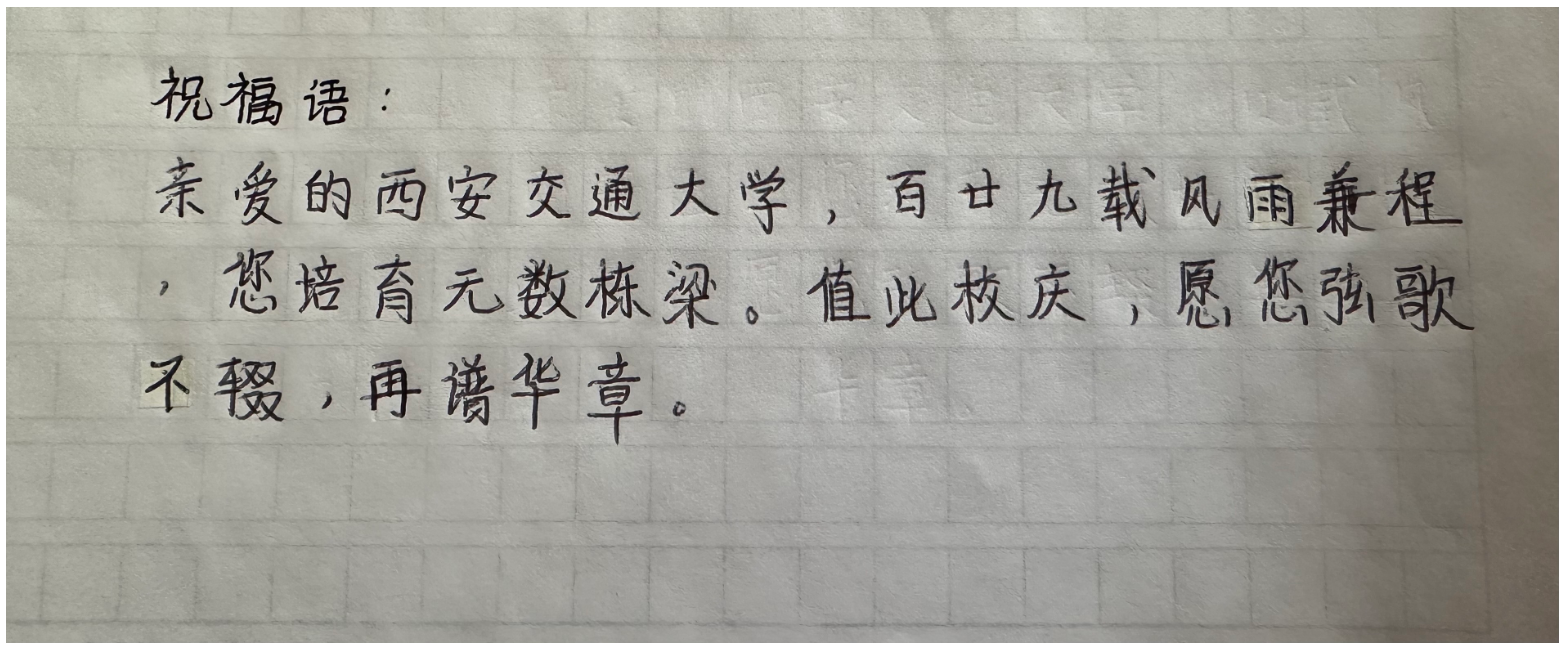 祝福语：
亲爱的西安交通大学，百廿九载风雨兼程
，您培育无数栋梁。值此校庆，愿您弦歌
不辍，再谱华章。